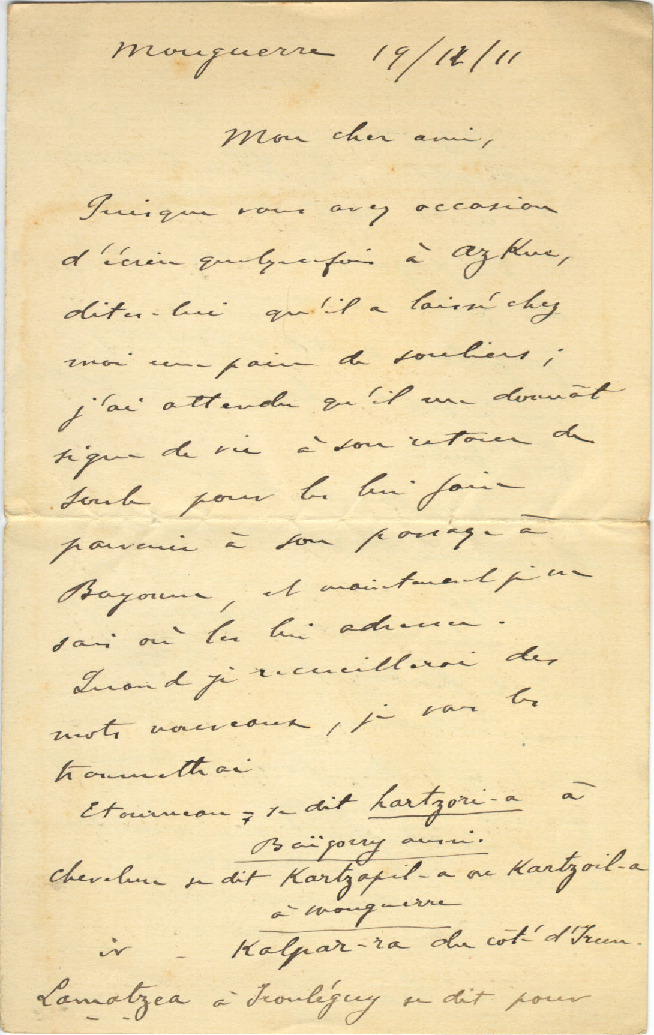 Mouguerre 19/12/11
Mon cher ami,
Puisque vous avez occasion
d'écrire quelquefois à Azkue,
dites-lui qu'il a laissé chez
moi une paire de souliers ;
j'ai attendu qu'il me donnât
signe de vie à son retour de
Soule pour les lui faire
parvenir à son passage à
Bayonne, et maintenant je ne
sais où les lui adresser.
Quand je recueillerai des
mots nouveaux, je vous les
transmettrai
Etourneau se dit hartzori-a à
Baïgorry aussi.
Chevelure se dit Kartzapil-a ou Kartzoil-a
à Mouguerre
- Kalpar-ra du côté d'Irun.
Lamatzea à Irouléguy se dit pour